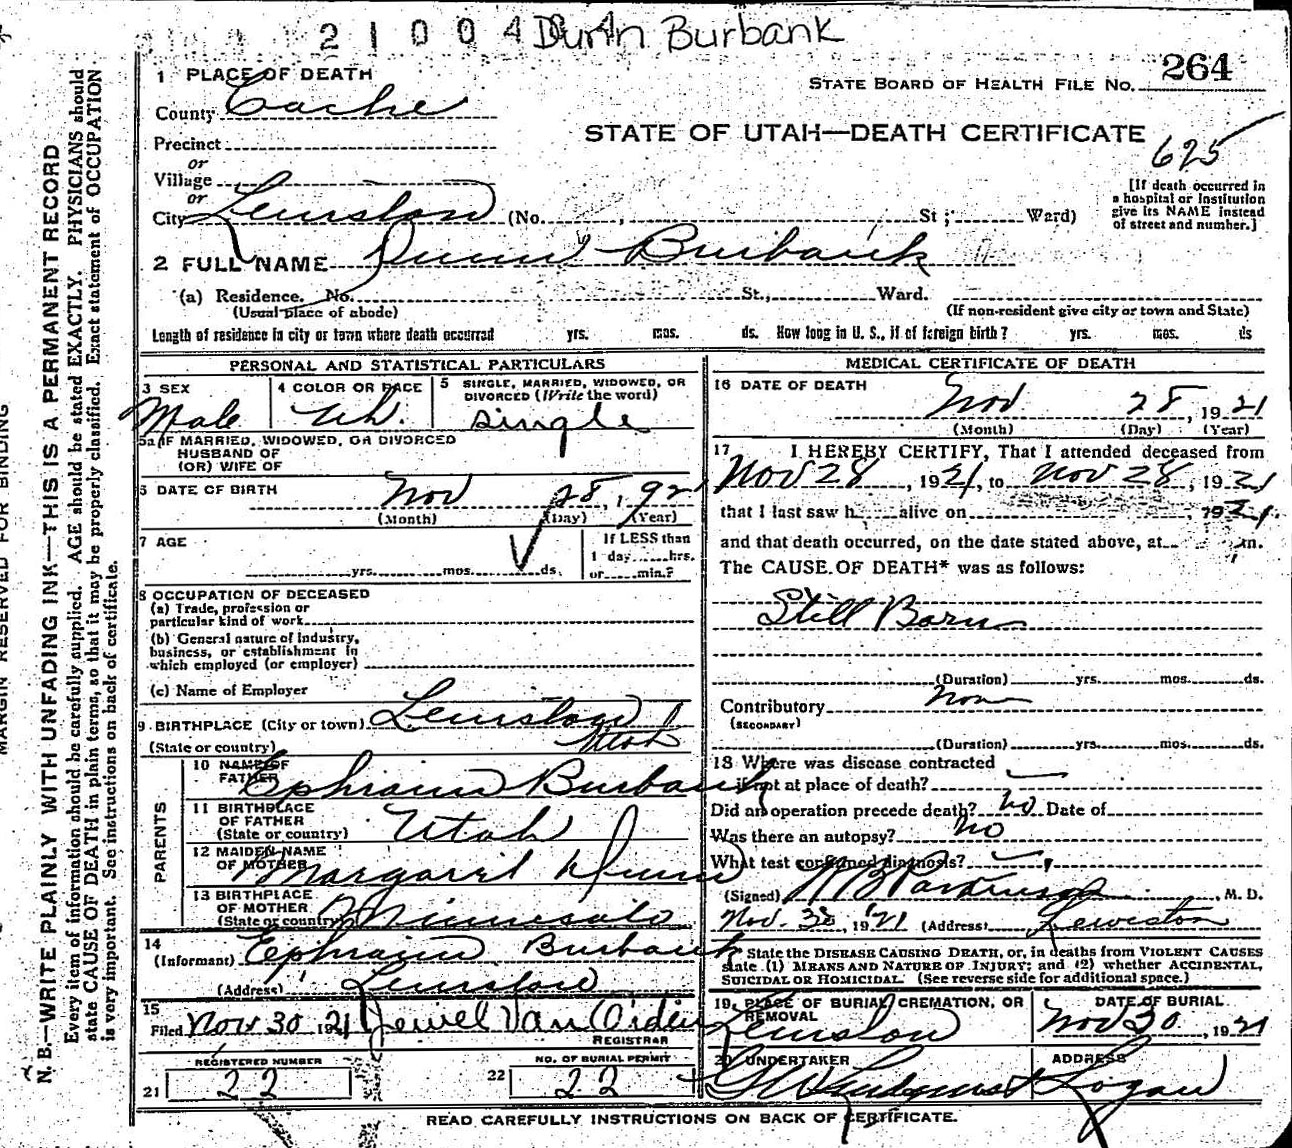 2 1 0 0 4 Burbank
1 PLACE OF DEATH
STATE BOARD OF HEALTH FILE NO. 264
County Cache
STATE OF UTAH—DEATH CERTIFICATE
625
Precinct
or
Village
or
City Lewiston (No. , St; Ward)
[If death occurred in
a hospital or institution
give its NAME instead
of street and number.]
2 FULL NAME Dunn Burbank
(a) Residence. No. St., Ward.
(Usual place of abode) (If non-resident give city or town and State)
Length of residence in city or town where death occurred yrs. mos. ds. How long in U. S., if of foreign birth? yrs. mos. ds
PERSONAL AND STATISTICAL PARTICULARS
3 SEX Male
4 COLOR OR RACE Wh.
5 SINGLE, MARRIED, WIDOWED, OR
DIVORCED (Write the word)
single
5a IF MARRIED, WIDOWED, OR DIVORCED
HUSBAND OF
(OR) WIFE OF
6 DATE OF BIRTH Nov 28, 192
(Month) (Day) (Year)
7 AGE
yrs. mos. ds.
If LESS than
1 day hrs.
or min.?
8 OCCUPATION OF DECEASED
(a) Trade, profession or
particular kind of work
(b) General nature of industry,
business, or establishment in
which employed (or employer)
(c) Name of Employer
9 BIRTHPLACE (City or town) Lewiston
(State or country) Utah
PARENTS
10 NAME OF
FATHER Ephraim Burbank
11 BIRTHPLACE
OF FATHER
(State or country) Utah
12 MAIDEN NAME
OF MOTHER Margaret Dunn
13 BIRTHPLACE
OF MOTHER
(State or country) Minnesota
14
(Informant) Ephraim Burbank
(Address) Lewiston
15
Filed Nov 30 1921 Jewel Van Orden
REGISTRAR
REGISTERED NUMBER
21 22
NO. OF BURIAL PERMIT
22 22
MEDICAL CERTIFICATE OF DEATH
16 DATE OF DEATH
Nov 28, 1921
(Month) (Day) (Year)
17 I HEREBY CERTIFY, That I attended deceased from
Nov 28, 1921, to Nov 28, 1921
that I last saw h alive on 1921
and that death occurred, on the date stated above, at m.
The CAUSE OF DEATH* was as follows:
Still Born
(Duration) yrs. mos. ds.
Contributory Non
(SECONDARY)
(Duration) yrs. mos. ds.
18 Where was disease contracted
if not at place of death?
Did an operation precede death? no Date of
Was there an autopsy? no
What test confirmed diagnosis?
(Signed) Parkinson M. D.
Nov. 30, 1921 (Address) Lewiston
State the DISEASE CAUSING DEATH, or, in deaths from VIOLENT CAUSES
state (1) MEANS AND NATURE OF INJURY; and (2) whether ACCIDENTAL,
SUICIDAL OR HOMICIDAL. (See reverse side for additional space.)
19 PLACE OF BURIAL CREMATION, OR
REMOVAL
Lewiston
DATE OF BURIAL
Nov 30, 1921
20 UNDERTAKER
Lindquist
ADDRESS
Logan
READ CAREFULLY INSTRUCTIONS ON BACK OF CERTIFICATE.
MARGIN RESERVED FOR BINDING
N. B.—WRITE PLAINLY WITH UNFADING INK—THIS IS A PERMANENT RECORD
Every item of information should be carefully supplied. AGE should be stated EXACTLY. PHYSICIANS should
state CAUSE OF DEATH in plain terms, so that it may be properly classified. Exact statement of OCCUPATION
is very important. See instructions on back of certificate.